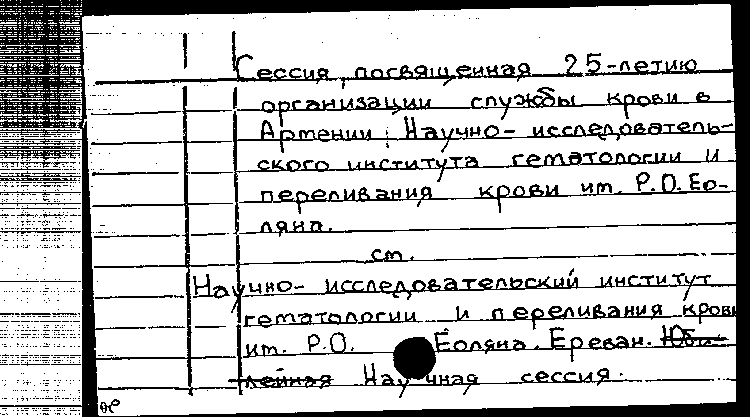 Сессия, посвященная 25-летию
организации службы крови в
Армении; Научно-исследователь-
ского института гематологии и
переливания крови им. Р.О. Ео-
ляна.
см.
Научно-исследовательский институт
гематологии и переливания крови
им. Р.О. Еоляна. Ереван. Юби-
лейная Научная сессия.